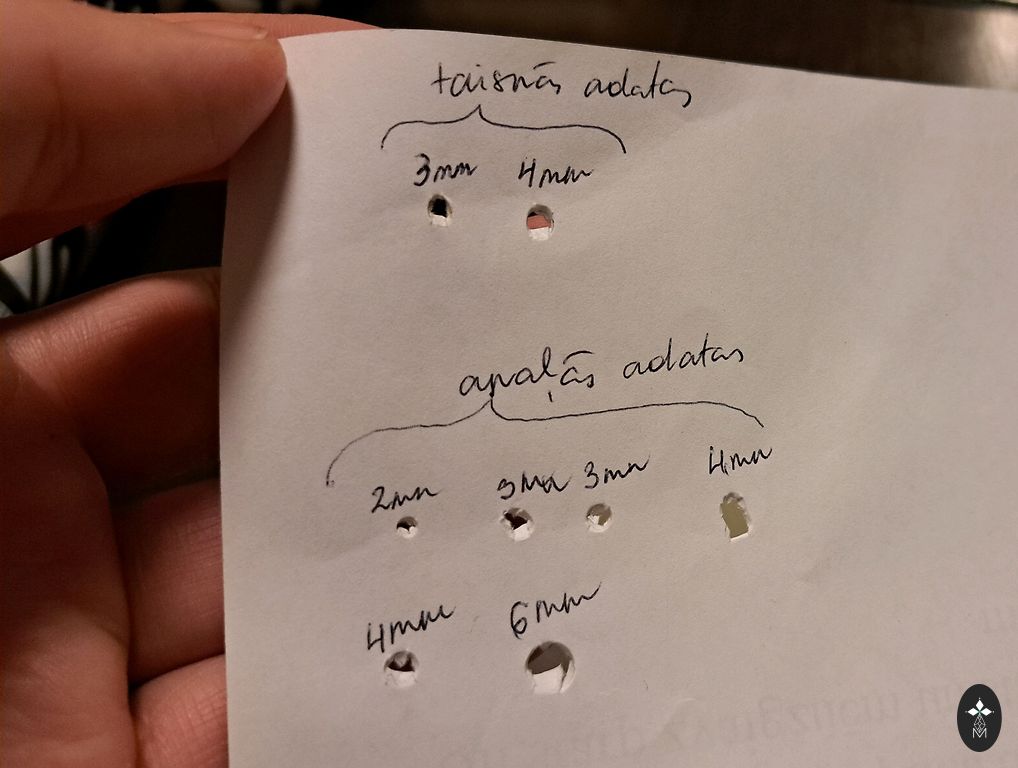 taisnās adatas
3mm 4mm
apaļās adatas
2mm 3mm 3mm 4mm
4mm 6mm
M